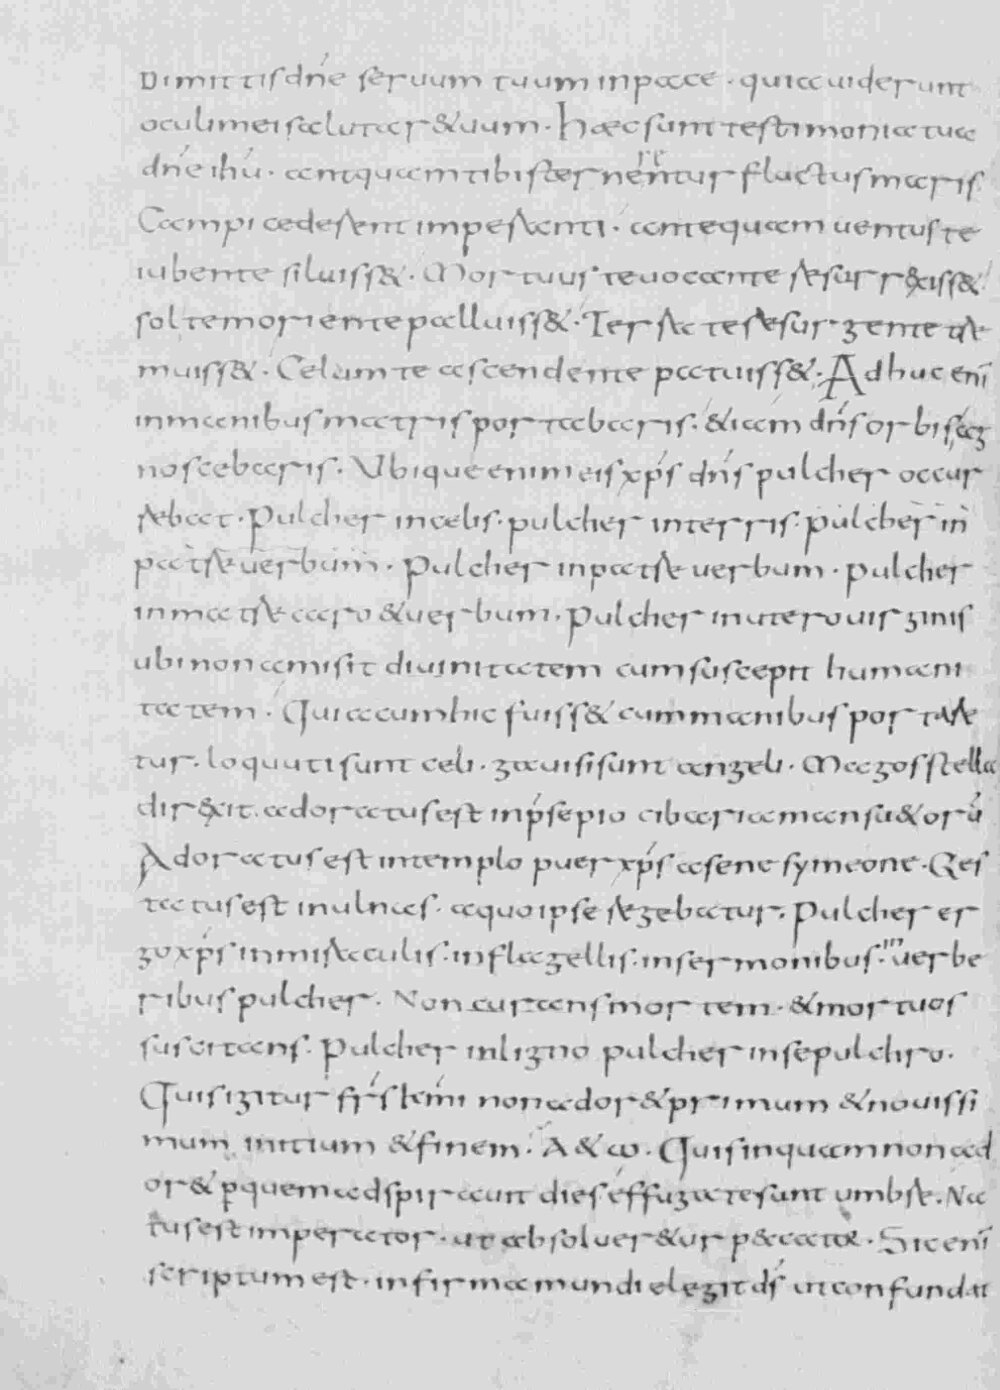 Dimittis dn̄e seruum tuum in pace · quia uiderunt
oculi mei salutar& uum · Haec sunt testimonia tua
dn̄e ihū · antquam tibi sternerentur fluctus maris
Campi cedesent imperanti · antequam uentus te
iubente siluiss& · Mortuus te uocante resurr&iss&
sol te moriente palluiss& · Terra te resurgente tre
muiss& · Celum te ascendente patuiss& · Adhuc eni̅
in manibus matris portabaris · & iam dn̄s orbis ag
noscebaris · Vbique enim eis xp̄s dn̄s pulcher occur
rebat · Pulcher in celis · pulcher in terris · pulcher in
patre uerbum · Pulcher in patre uerbum · pulcher
in matre caro & uerbum · Pulcher in utero uirginis
ubi non amisit diuinitatem cum suscepit humani
tatem · Quia cum hic fuiss& cum manibus portare
tur · loquuti sunt celi · gauisi sunt angeli · Magos stella
dir&it · adoratus est in p̄sepio cibaria mansu&orū
Adoratus est in templo puer xp̄s a sene symeone · Ges
tatus est in ulnas · a quo ipse regebatur · Pulcher er
go xp̄s in miraculis · in flagellis · in sermonibus · in uerbe
ribus pulcher · Non curans mortem · & mortuos
suscitans · Pulcher in ligno pulcher in sepulchro ·
Quis igitur fr̄s kmi non ador& primum & nouissi
mum initium & finem · A & ω · Quis inquam non ad
or& p̱ quem adspiraunt dies effugate sunt umbre · Na
tus est imperator · ut absoluer&ur p&cata · Sic eni̅
scriptum est · infirma mundi elegit ds̄ ut confundat